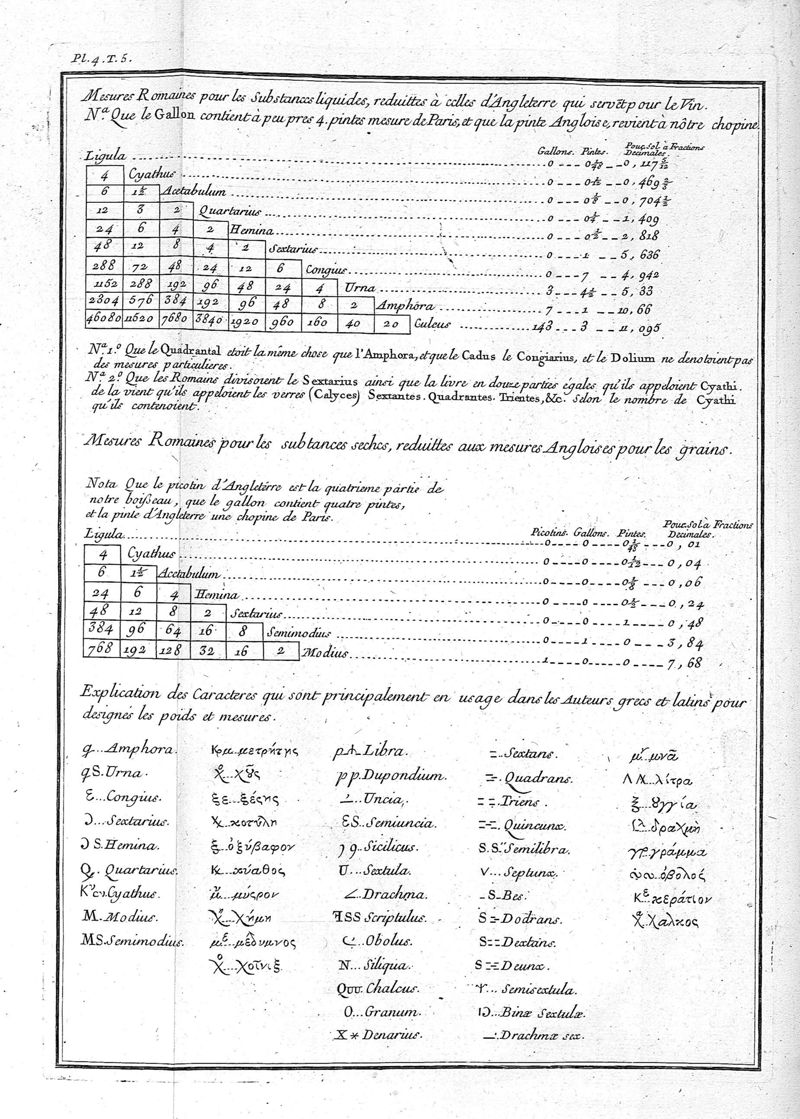 Pl. 4. T. 5.
Mesures Romaines pour les Substances liquides, reduittes à celles d'Angleterre qui servēt pour le Vin.
Nᵃ. Que le Gallon contient à peu pres 4. pintes mesure de Paris, et que la pinte Angloise, revient à nôtre chopine.
Gallons. Pintes. Pouc. Sol. à Fractions Decimales.
Ligula 0 0 1/48 0, 117 5/12
4 Cyathus 0 0 1/12 0, 469 2/3
6 1 1/2 Acetabulum 0 0 1/8 0, 704 1/2
12 3 2 Quartarius 0 0 1/4 1, 409
24 6 4 2 Hemina 0 0 1/2 2, 818
48 12 8 4 2 Sextarius 0 1 5, 636
288 72 48 24 12 6 Congius 0 7 4, 942
1152 288 192 96 48 24 4 Urna 3 4 1/2 5, 33
2304 576 384 192 96 48 8 2 Amphora 7 1 10, 66
46080 11520 7680 3840 1920 960 160 40 20 Culeus 143 3 11, 095
Nᵃ. 1.º Que le Quadrantal etoit la même chose que l'Amphora, et que le Cadus le Congiarius, et le Dolium ne denotoient pas
des mesures particulieres.
Nᵃ. 2.º Que les Romains divisoient le Sextarius ainsi que la livre en douze parties égales qu'ils appeloient Cyathi.
de la vient qu'ils appeloient les verres (Calyces) Sextantes. Quadrantes. Trientes, &c. selon le nombre de Cyathi
qu'ils contenoient.
Mesures Romaines pour les subtances seches, reduittes aux mesures Angloises pour les grains.
Nota Que le picotin d'Angleterre est la quatrieme partie de
notre boisseau, que le gallon contient quatre pintes,
et la pinte d'Angleterre une chopine de Paris.
Picotins. Gallons. Pintes. Pouc. Sol à Fractions Decimales.
Ligula 0 0 0 1/48 0, 01
4 Cyathus 0 0 0 1/12 0, 04
6 1 1/2 Acetabulum 0 0 0 1/8 0, 06
24 6 4 Hemina 0 0 0 1/2 0, 24
48 12 8 2 Sextarius 0 0 1 0, 48
384 96 64 16 8 Semimodius 0 1 0 3, 84
768 192 128 32 16 2 Modius 1 0 0 7, 68
Explication des Caracteres qui sont principalement en usage dans les Auteurs grecs et latins pour
designés les poids et mesures.
Amphora.
S. Urna.
Congius.
Sextarius.
S. Hemina.
Quartarius.
Cyathus
M. Modius.
MS. Semimodius.
μετρητης
χοῦς
ξέςης
κοτύλη
ὀξύβαφον
κύαθος
μύςρον
χήμη
μέδυμνος
χοῖνιξ
Libra.
pp. Dupondium.
Uncia.
Semiuncia.
Sicilicus.
Sextula.
Drachma.
Scriptulus.
Obolus.
N... Siliqua.
Chalcus.
O... Granum.
X * Denarius.
Sextans.
Quadrans.
Triens.
Quincunx.
S. Semilibra.
Septunx.
S- Bes.
S Dodrans.
S Dextans.
S Deunx.
Semisextula.
Binæ Sextulæ.
Drachmæ sex.
μνᾶ
λίτρα
ȣγγία
δραχμὴ
γράμμα
ὀβολος
κεράτιον
χαλκος